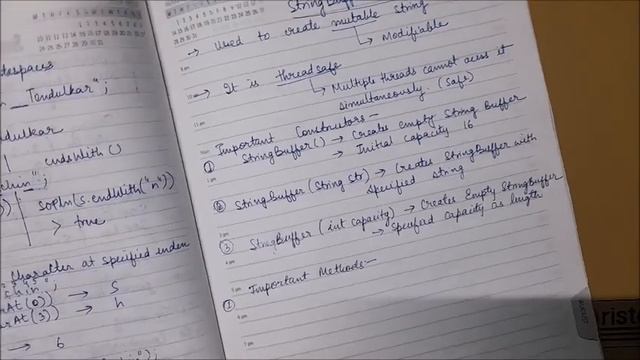 tespaces
__Tendulkar";
ndulkar
endsWith()
sopln(s.endsWith("n"))
> true
character at specified index
charAt(0)) → S
charAt(3)) → h
→ 6
StringBuff
→ Used to create mutable string
→ Modifiable
→ It is threadsafe
→ Multiple threads cannot acess it
simultaneously. (Safe)
Important Constructors—
① StringBuffer() → Creates empty String Buffer
→ Initial capacity 16
② StringBuffer (String str) → Creates StringBuffer with
specified string
③ StringBuffer (int capacity) → Creates Empty StringBuffer
→ Specified capacity as length
Important Methods:—
①